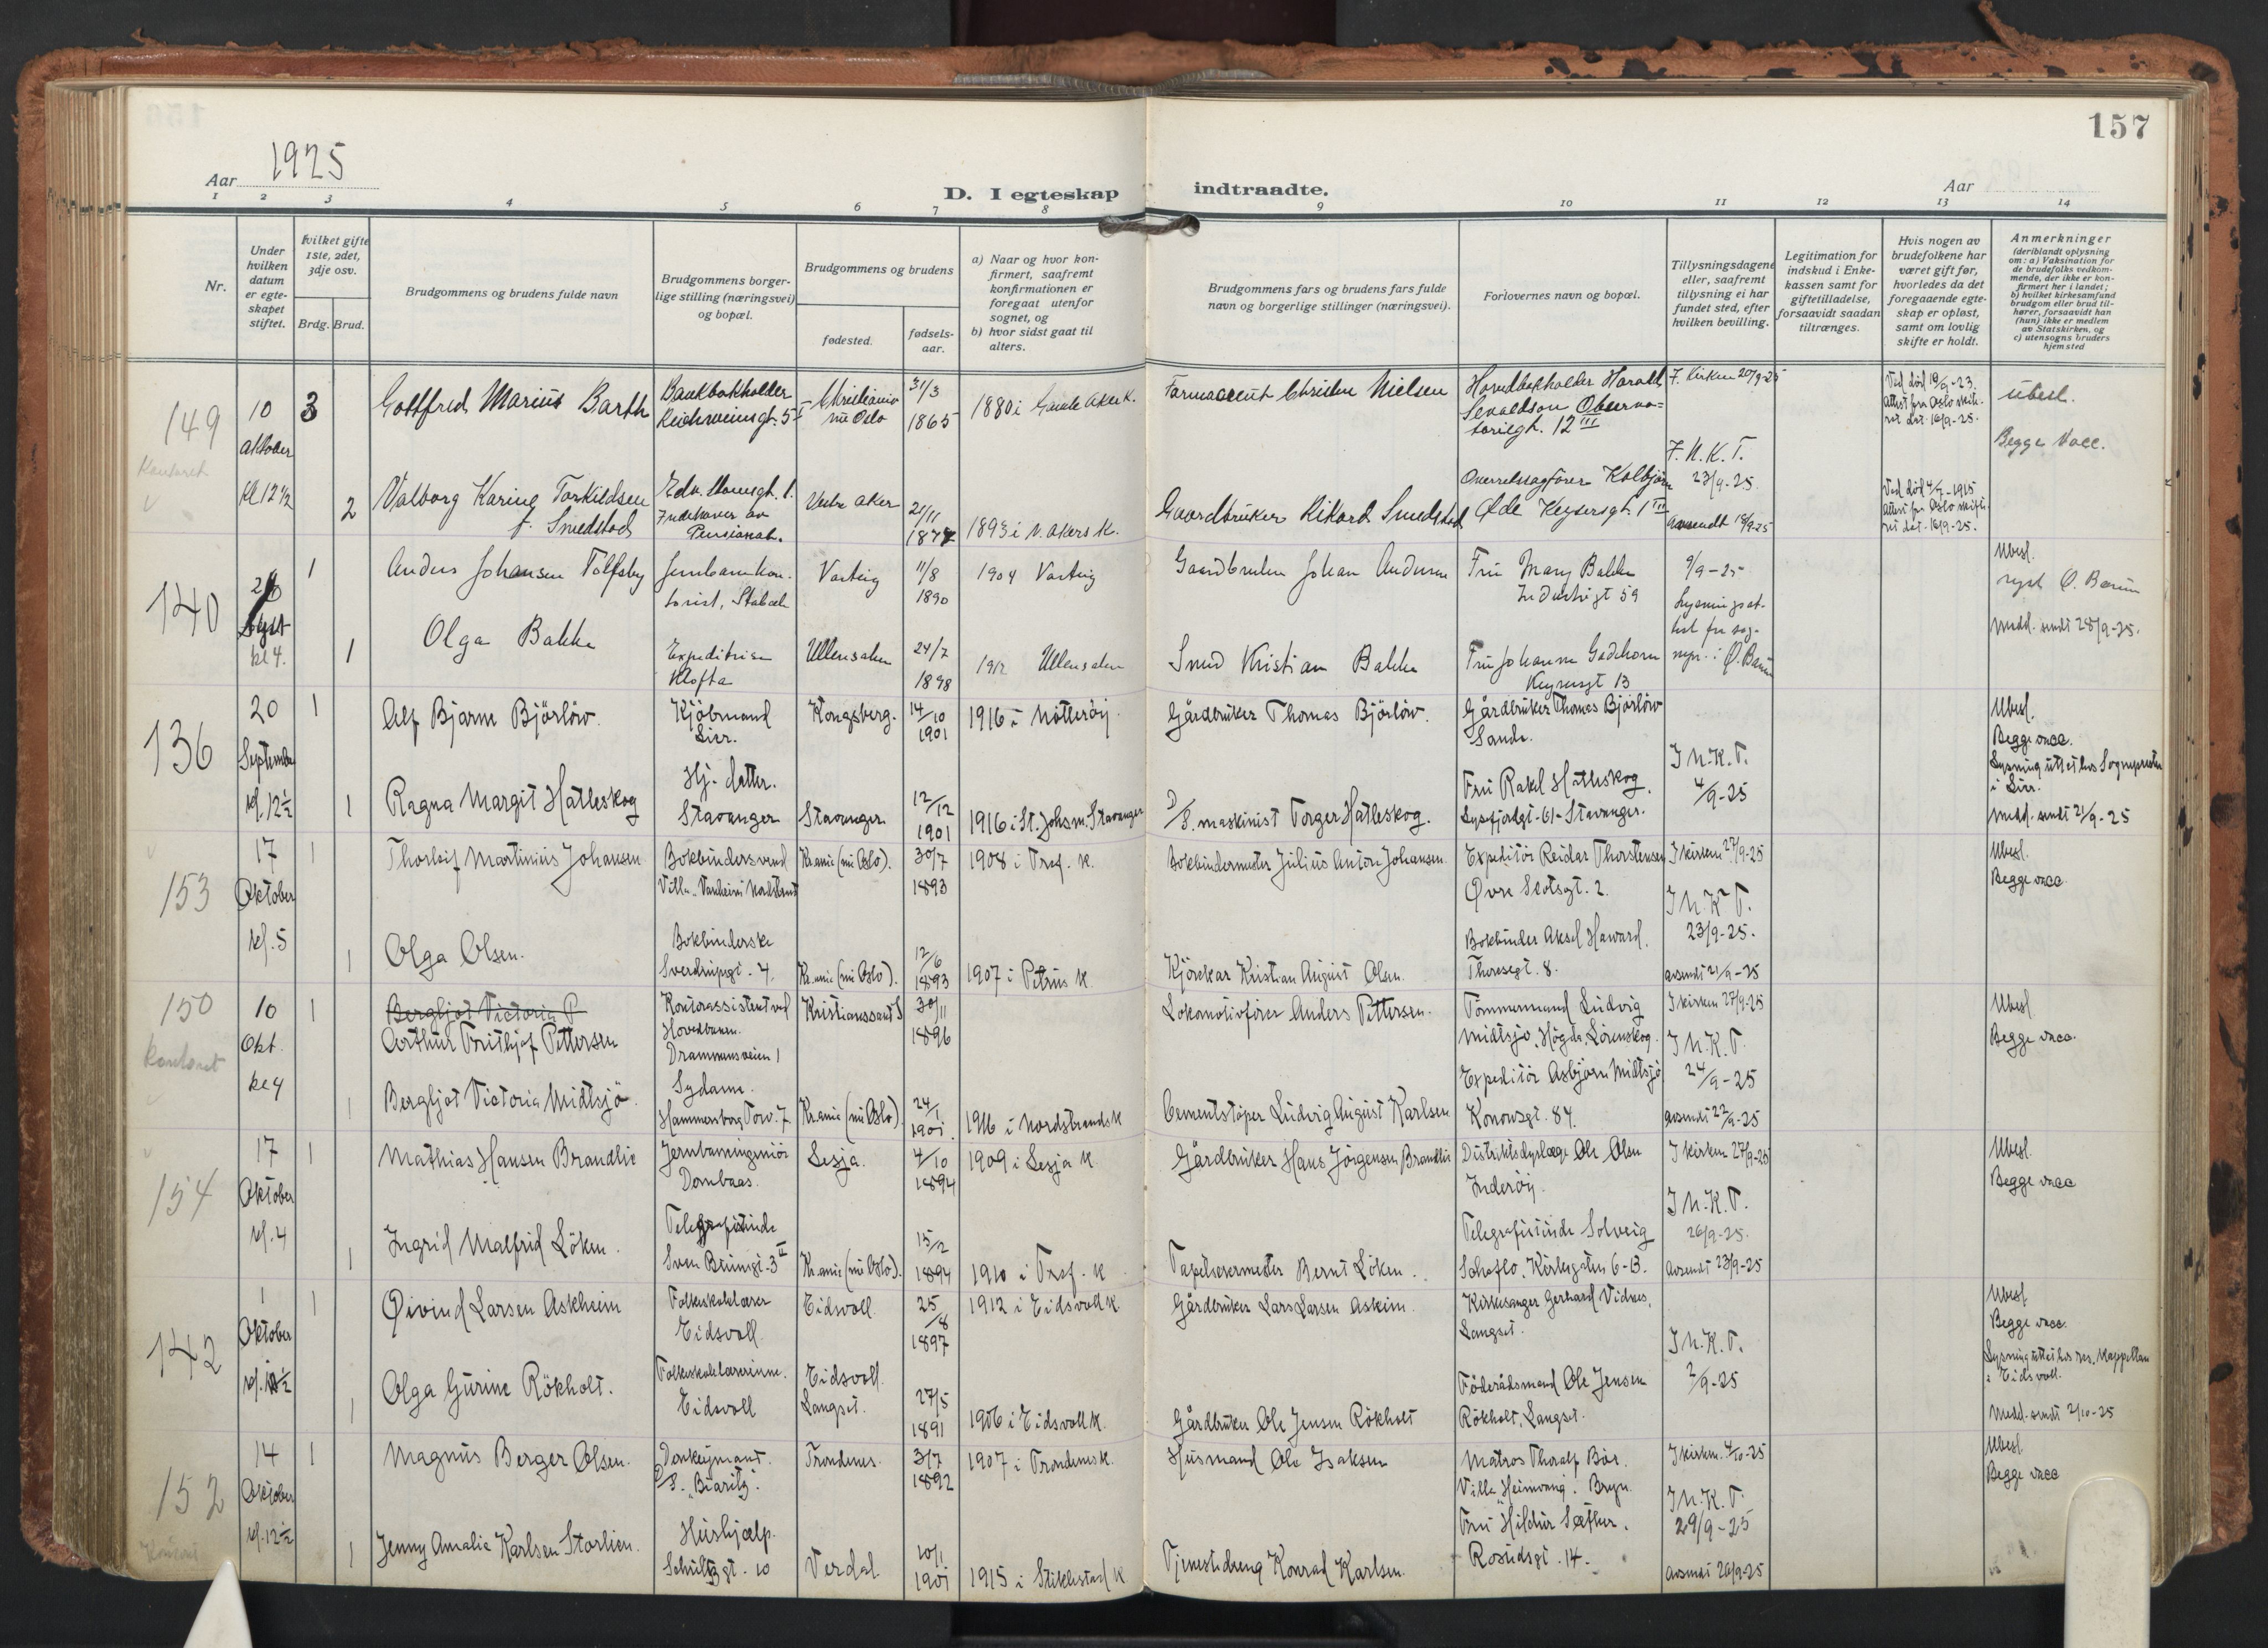 157
Aar 1925
D. I egteskap indtraadte.
Aar
1 2 3 4 5 6 7 8 9 10 11 12 13 14
Nr.
Under
hvilken
datum
er egte-
skapet
stiftet.
hvilket gifte
1ste, 2det,
3dje osv.
Brdg. Brud.
Brudgommens og brudens fulde navn
Brudgommens borger-
lige stilling (næringsvei)
og bopæl.
Brudgommens og brudens
fødested.
fødsels-
aar.
a) Naar og hvor kon-
firmert, saafremt
konfirmationen er
foregaat utenfor
sognet, og
b) hvor sidst gaat til
alters.
Brudgommens fars og brudens fars fulde
navn og borgerlige stillinger (næringsvei).
Forlovernes navn og bopæl.
Tillysningsdagene
eller, saafremt
tillysning ei har
fundet sted, efter
hvilken bevilling.
Legitimation for
indskud i Enke-
kassen samt for
giftetilladelse,
forsaavidt saadan
tiltrænges.
Hvis nogen av
brudefolkene har
været gift før,
hvorledes da det
foregaaende egte-
skap er opløst,
samt om lovlig
skifte er holdt.
Anmerkninger
(deriblandt oplysning
om: a) Vaksination for
de brudefolks vedkom-
mende, der ikke er kon-
firmert her i landet;
b) hvilket kirkesamfund
brudgom eller brud til-
hører, forsaavidt han
(hun) ikke er medlem
av Statskirken, og
c) utensogns bruders
hjemsted
149
Kontoret
10
oktober
kl 12 1/2
3
Gottfred Marius Barth
Bankbokholder
Christiania
nu Oslo
31/3
1865
1880 i Gamle Aker K.
Farmaceut Christen Nielsen
Hovedbokholder Harald
Sevaldson Observa=
toriegt. 12 III
I. Kirken 20/9-25
I. N. K. T.
23/9-25.
Avsendt 18/9-25
Ved død 19/9-23.
Attest fra Oslo skif.
ret dat. 16/9-25.
ubesl.
Begge Vacc.
2
Valborg Karine Torkildsen
f. Smedstad
Edv. Stormsgt. 1.
Indehaver av
Pensionat.
Vestre Aker
21/11
1877
1893 i V. Akers K.
Gaardbruker Rikard Smedstad
Overretssagfører Kolbjørn
Øde Keysersgt. 1 III
Ved død 4/7-1915
attest fra Oslo skift.
ret dat. 16/9-25.
140
26
Sept
kl 4.
1
Anders Johansen Tolfsby
Jernbanekon.
torist, Stabæk
Varteig
11/8
1890
1904 Varteig
Gaardbruker Johan Andersen
Fru Mary Bakke
Industrigt 59
9/9-25
Lysningsat-
test fra sog-
nepr. i Ø. Bærum
Ubesl.
syst Ø. Bærum
Medd. sendt 28/9-25.
1
Olga Bakke
Expeditrise
Kløfta
Ullensaker
24/7
1898
1912 Ullensaker
Smed Kristian Bakke
Keysersgt 13
136
20
September
kl. 12 1/2
1
Alf Bjarne Björlöw.
Kjöbmand
Lier.
Kongsberg.
14/10
1901
1916 i Nötteröy.
Gårdbruker Thomas Björlöw.
Gårdbruker Thomas Björlöw
Sande.
I N. K. T.
4/9-25
Ubesl.
Begge vacc.
Lysning uttat hos Sogneprest
i Lier.
Medd. sendt 21/9-25
1
Ragna Margit Hatleskog
Hj. datter.
Stavanger
Stavanger
12/12
1901
1916 i St. Johs m. Stavanger
D/S. maskinist Torger Hatleskog.
Fru Rakel Hatleskog.
Lysefjordgt-61-Stavanger.
153
17
Oktober
kl. 5
1
Thorleif Martinius Johansen
Bokbindersvend
Kr.ania (nu Oslo).
30/7
1893
1908 i Tref. K.
Bokbindermester Julius Anton Johansen.
Expeditör Reidar Thorstensen
Øvre Slotsgt. 2.
I kirken 27/9-25
I N. K. T.
23/9-25.
avsendt 21/9-25
Ubesl.
Begge vacc.
1
Olga Olsen.
Bokbinderske
Sverdrupsgt. 4.
Kr.ania (nu Oslo).
12/6
1893
1907 i Petrus K.
Kjörekar Kristian August Olsen.
Bokbinder Aksel Haward.
Thoresegt. 8.
150
Kontoret
10
Okt.
kl 4
1
Bergljot Victoria P
Arthur Frithjof Pettersen
Kontorassistent ved
Hovedbanen.
Drammensveien 1
Kristianssand S
30/11
1896
Lokomotivförer Anders Pettersen.
Tömmermand Ludvig
Midtsjö, Högda, Lörenskog.
I kirken 27/9-25
I N. K. T.
24/9-25
avsendt 22/9-25
Ubesl.
Begge vacc.
1
Bergljot Victoria Midtsjö
Sydame.
Hammersborg Torv. 7
Kr.ania (nu Oslo).
24/1
1901.
1916 i Nordstrands K
Cementstöper Ludvig August Karlsen
Expeditör Asbjörn Midtsjö
Konowsgt. 84.
154
17
Oktober
kl. 4
1
Mathias Hansen Brandlie
Jernbaneingeniör
Dombaas.
Lesja.
4/10
1894
1909 i Lesja K.
Gårdbruker Hans Jörgensen Brandlie
Distriktsdyrlæge Ole Olsen
Inderöy.
I kirken 27/9-25
I N. K. T.
26/9-25.
Avsendt 23/9-25
Ubesl.
Begge vacc
1
Ingrid Malfrid Löken.
Telegrafistinde
Sven Bruunsgt-3 II
Kr.ania (nu Oslo).
15/2
1894
1910 i Tref. K
Tapetserermester Bernt Löken.
Telegrafistinde Solveig
Schaflo, Kirkegaten 6-B.
142
1
Oktober
1
Øivind Larsen Askheim
Folkeskolelærer
Eidsvoll.
Eidsvoll
25/8
1897
1912 i Eidsvoll K.
Gårdbruker Lars Larsen Askim.
Kirkesanger Gerhard Vidnes,
Langset.
I N. K. T.
2/9-25
Ubesl
Begge vacc.
Lysning uttat hos res. Kappellan
i Eidsvoll.
Medd. sendt 2/10-25
1
Olga Gurine Rökholt.
Folkeskolelærerinne.
Eidsvoll
Eidsvoll.
Langset.
27/5
1891
1906 i Eidsvoll K.
Gårdbruker Ole Jensen Rökholt
Föderådsmand Ole Jensen
Rökholt, Langset.
152
Kontoret
14
Oktober
kl. 12 1/2
1
Magnus Berger Olsen.
Donkeymand.
D/S. "Biaritz".
Trondenes.
3/7
1892
1907 i Trondenes K.
Husmand Ole Isaksen
Matros Thoralf Bör.
Villa "Heimvang". Bryn.
I kirken. 4/10-25
I N. K. T.
29/9-25
avsendt 26/9-25
Ubesl.
Begge vacc
1
Jenny Amalie Karlsen Storlien.
Hushjælp.
Schultzgt. 10
Verdal
10/1
1901
1915 i Stiklestad K
Tjenestedreng Konrad Karlsen.
Fru Hildur Sæther.
Rosudsgt. 14.